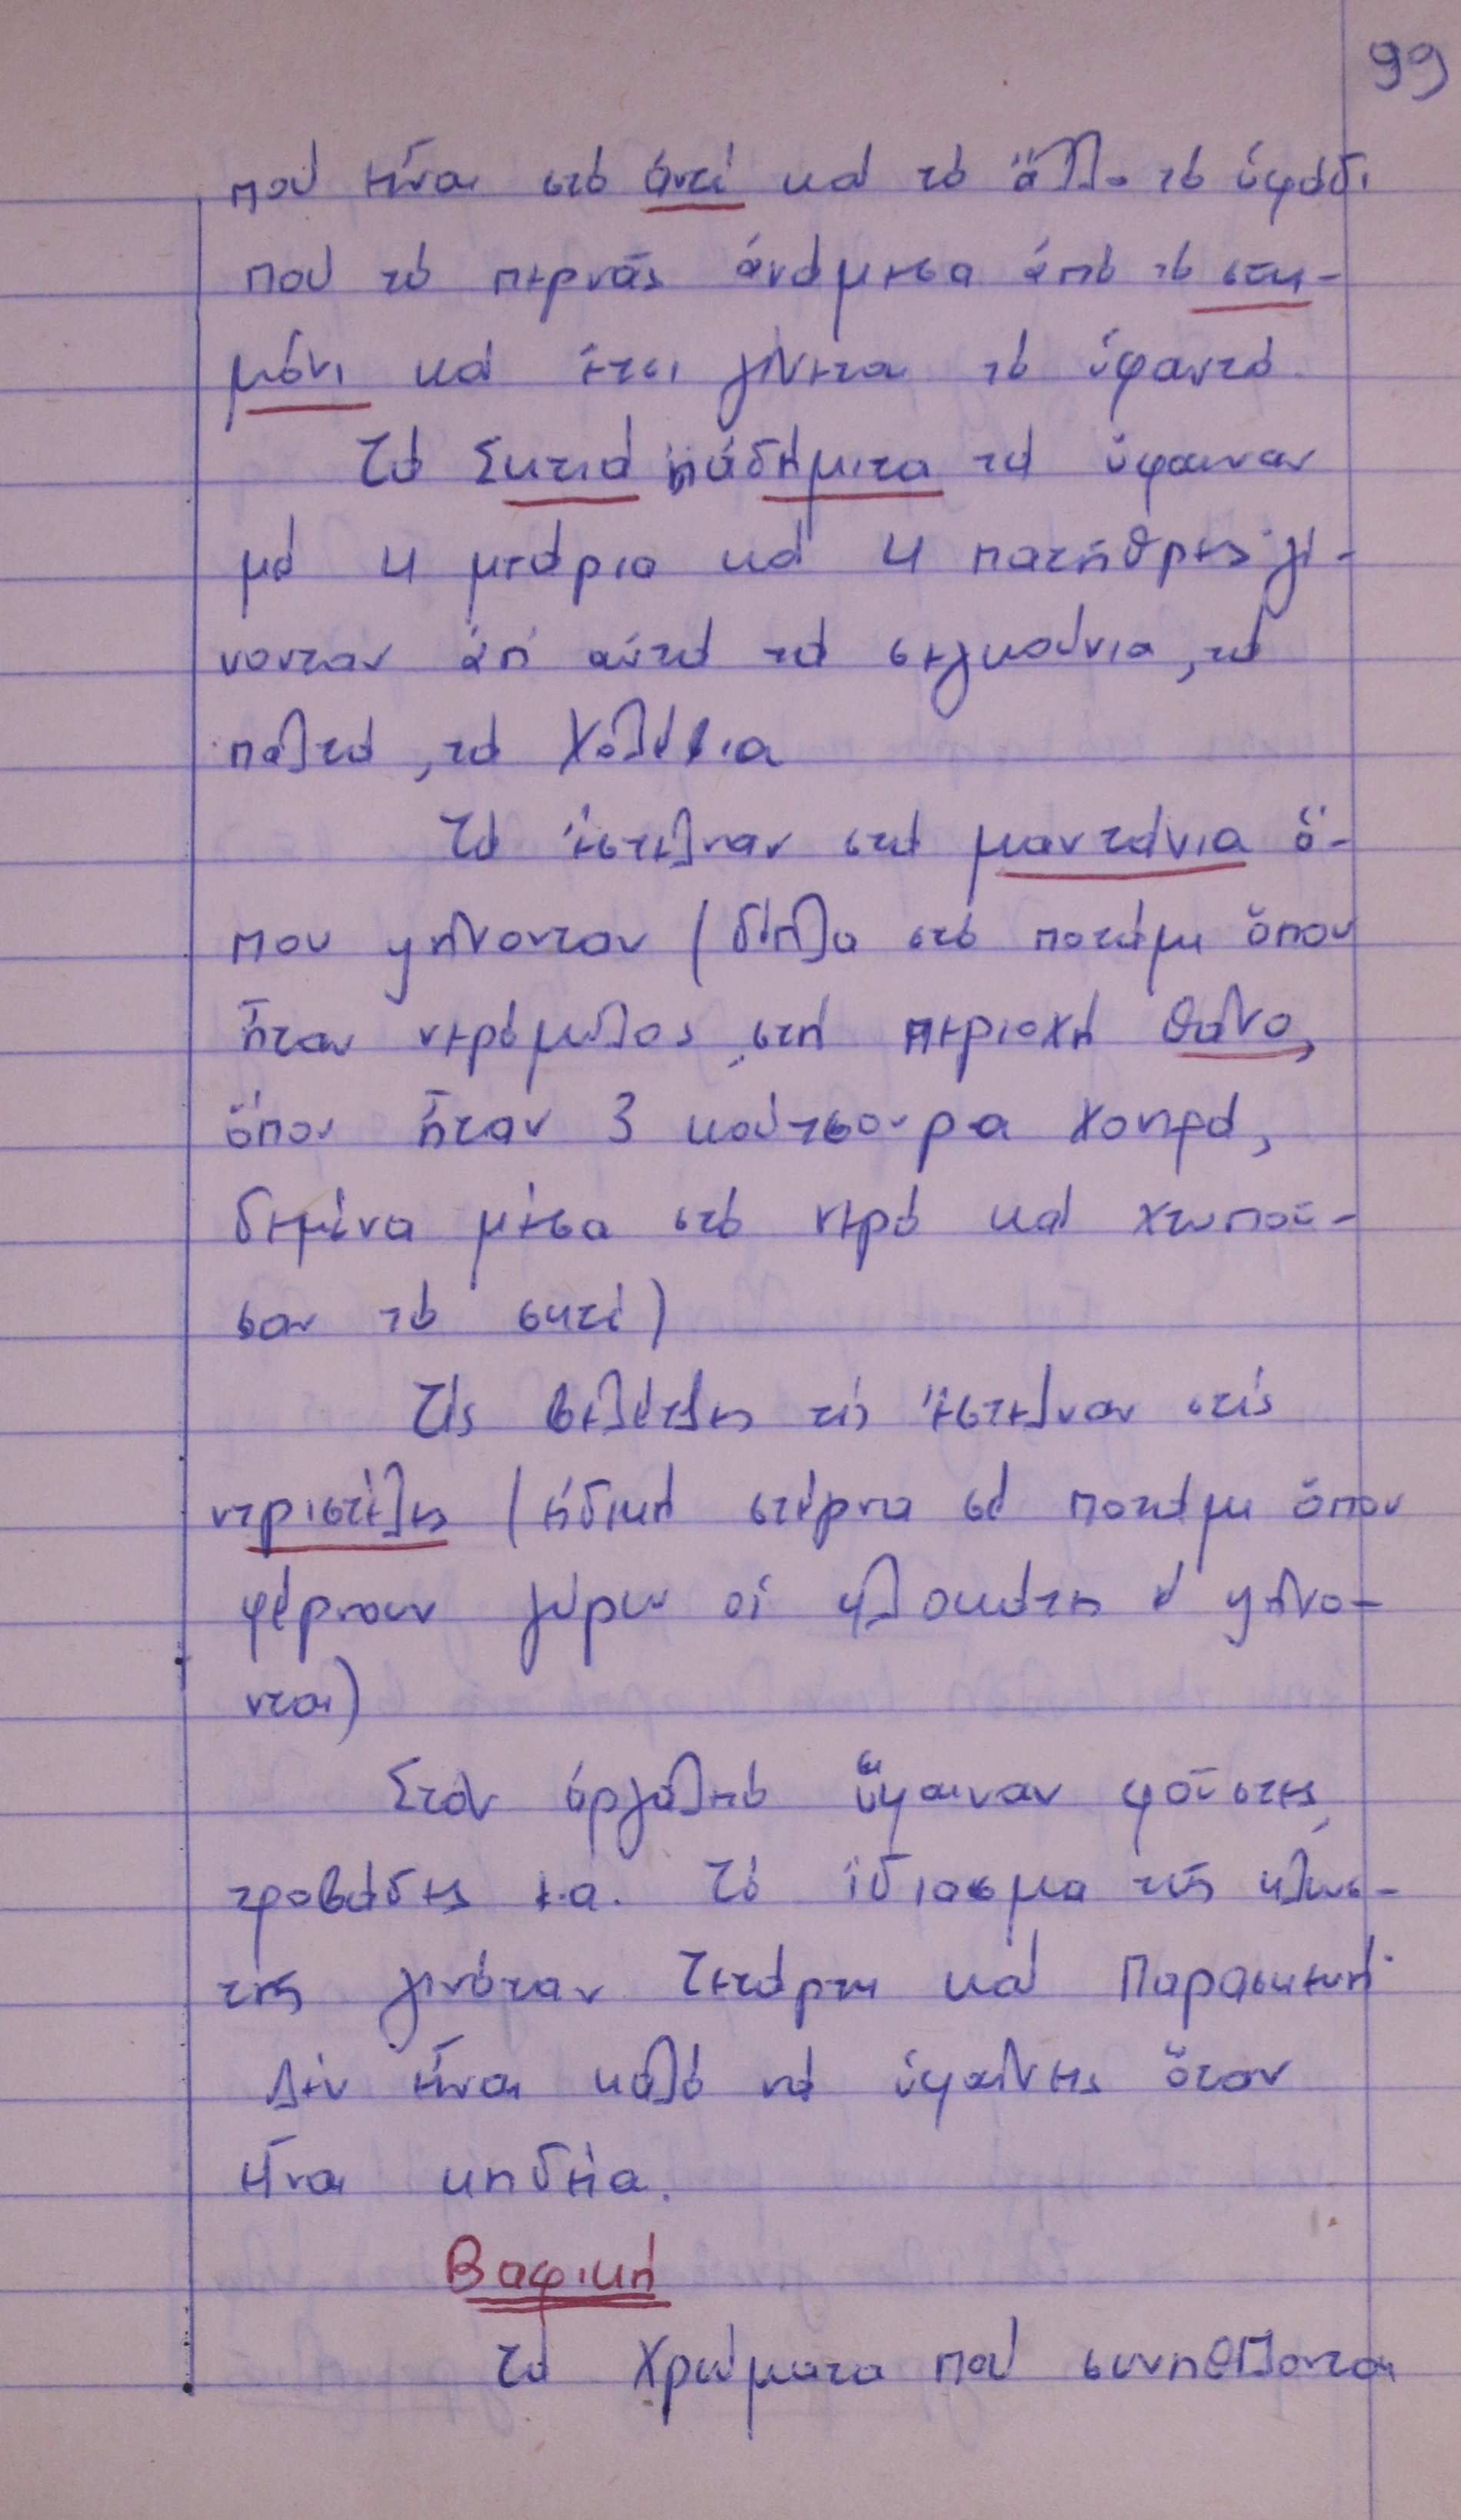 99
πού εἶναι στό ἀντί καί τό ἄλλο τό ὑφάδι
πού τό περνᾶς ἀνάμεσα ἀπό τό στη-
μόνι καί ἔτσι γίνεται τό ὑφαντό.
Τά Σκτιά τά δίμιτα τά ὕφαιναν
μέ 4 μιτάρια καί 4 πατήθρες γί-
νονταν ἀπ' αὐτά τά σεγκούνια, τά
παλτά, τά χολέβια
Τά ἔστελναν στά μαντάνια ὅ-
που ψήνονταν (δίπλα στό ποτάμι ὅπου
ἦταν νερόμυλος, στή περιοχή Θάνα,
ὅπου ἦταν 3 κούτσουρα χοντρά,
δεμένα μέσα στό νερό καί χτυποῦ-
σαν τό σκτί)
Τίς βελέτζες τίς ἔστελναν στίς
ντριστέλες (εἰδική στέρνα σέ ποτάμι ὅπου
φέρνουν γύρω οἱ φλοκάτες & ψήνο-
νται)
Στόν ἀργαλειό ὕφαιναν φοῦστες,
τροβάδες κ.α. Τό ἴδιασμα τῆς κλωσ-
τῆς γινόταν Τετάρτη καί Παρασκευή.
Δέν εἶναι καλό νά ὑφαίνεις ὅταν
εἶναι κηδεία.
Βαφική
Τά χρώματα πού συνηθίζονται